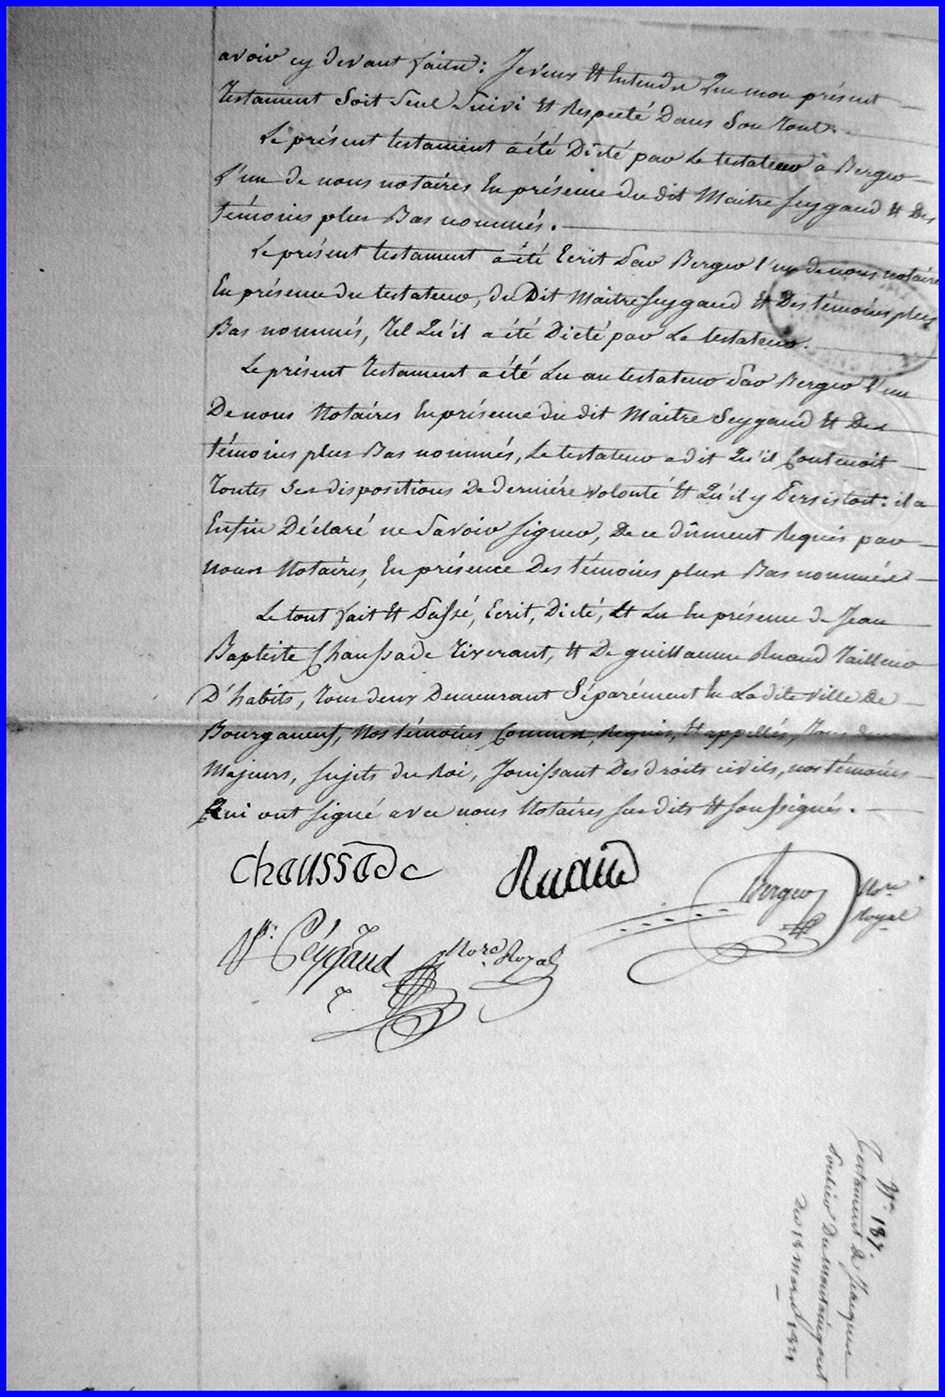 avoir cy devant faites: Je veux Et Entends Que mon présent
Testament Soit Seul Suivi Et Respecté Dans Son Tout.
Le présent testament a été Dicté par Le testateur à Berger
L'un de nous notaires En présence du dit Maitre Seygaud Et Des
témoins plus Bas nommés.
Le présent testament a été Ecrit Par Berger l'un de nous notaires
En présence du testateur, du Dit Maitre Seygaud Et Des témoins plus
Bas nommés, Tel Qu'il a été Dicté par Le testateur.
Le présent Testament a été Lu au testateur Par Berger l'un
De nous Notaires En présence du dit Maitre Seygaud Et Des
témoins plus Bas nommés, Le testateur a dit Qu'il Contenoit
Toutes Ses dispositions De derniére volonté Et Qu'il y Persistoit: il a
Enfin Déclaré ne Savoir signer, De ce dûment Requis par
nous Notaires, En présence Des témoins plus Bas nommés
Le tout fait Et Passé, Ecrit, Dicté, Et Lu En présence de Jean
Baptiste Chaussade Tixerant, Et De guillaume Ruaud Tailleur
D'habits, Tous deux Demeurant Séparément En La dite ville De
Bourganeuf, Nos témoins Connus, Requis, Et appellés, Tous deux
Majeurs, sujets du Roi, Jouissant Des droits civils, nos témoins
Qui ont signé avec nous Notaires sus dits Et soussignés.
Chaussade Ruaud Berger Nore Royal
Séÿgaud Nore Royal
No 187.
Testament de Jacques
du 18 Mars